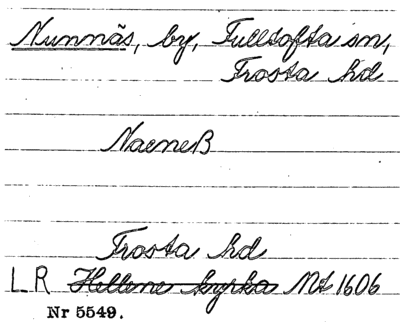 Nunnäs, by, Fulltofta sn,
Frosta hd
Naeneß
Frosta hd
LR Hellene kyrka Mt 1606
Nr 5549.